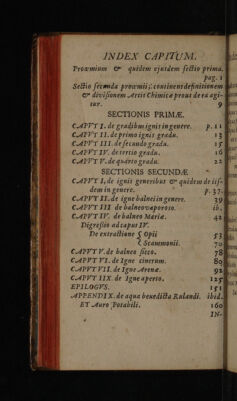 INDEX CAPITUM.
Proœmium & quidem ejusdem sectio prima.
pag. 1
Sectio secunda proœmii; continens definitionem
& divisionem Artis Chimicæ prout de ea agi-
tur. 9
SECTIONIS PRIMÆ.
CAPVT I. de gradibus ignis in genere. p. 11
CAPVT II. de primo ignis gradu. 13
CAPVT III. de secundo gradu. 15
CAPVT IV. de tertio gradu. 16
CAPVT V. de quarto gradu. 22
SECTIONIS SECUNDÆ
CAPVT I. de ignis generibus & quidem de iis-
dem in genere. p. 37.
CAPVT II. de igne balnei in genere. 39
CAPVT III de balneo vaporoso. ib.
CAPVT IV. de balneo Mariæ. 42
Digressio ad caput IV.
De extractione { Opii 53
{ Scammonii. 70
CAPVT V. de balneo sicco. 78
CAPVT VI. de Igne cinerum. 89
CAPVT VII. de Igne Arenæ. 92
CAPVT IIX. de Igne aperto. 125
EPILOGVS. 151
APPENDIX. de aqua benedicta Rulandi. ibid.
ET Auro Potabili. 160
IN-